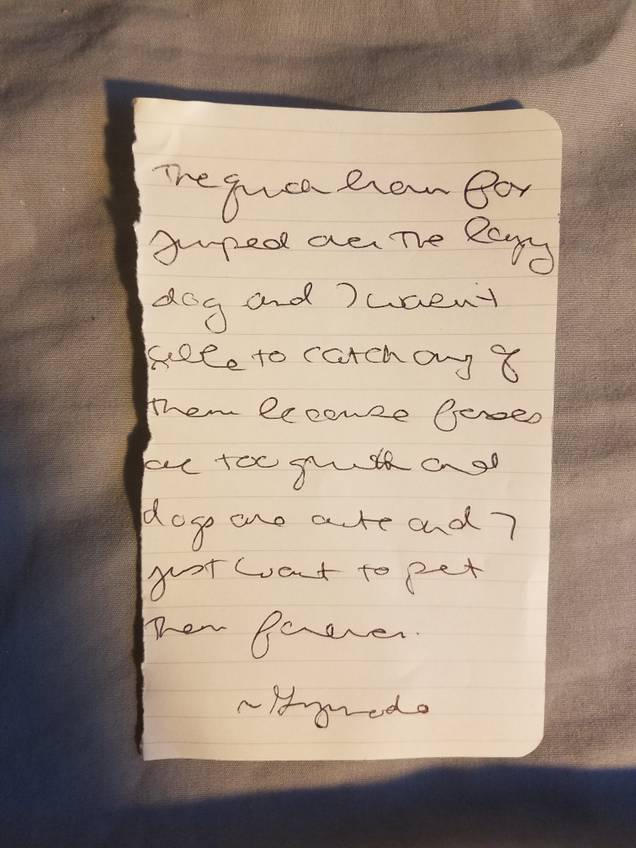 The quick brown fox
jumped over the lazy
dog and I wasn't
able to catch any of
them because foxes
are too quick and
dogs are cute and I
just want to pet
them forever.